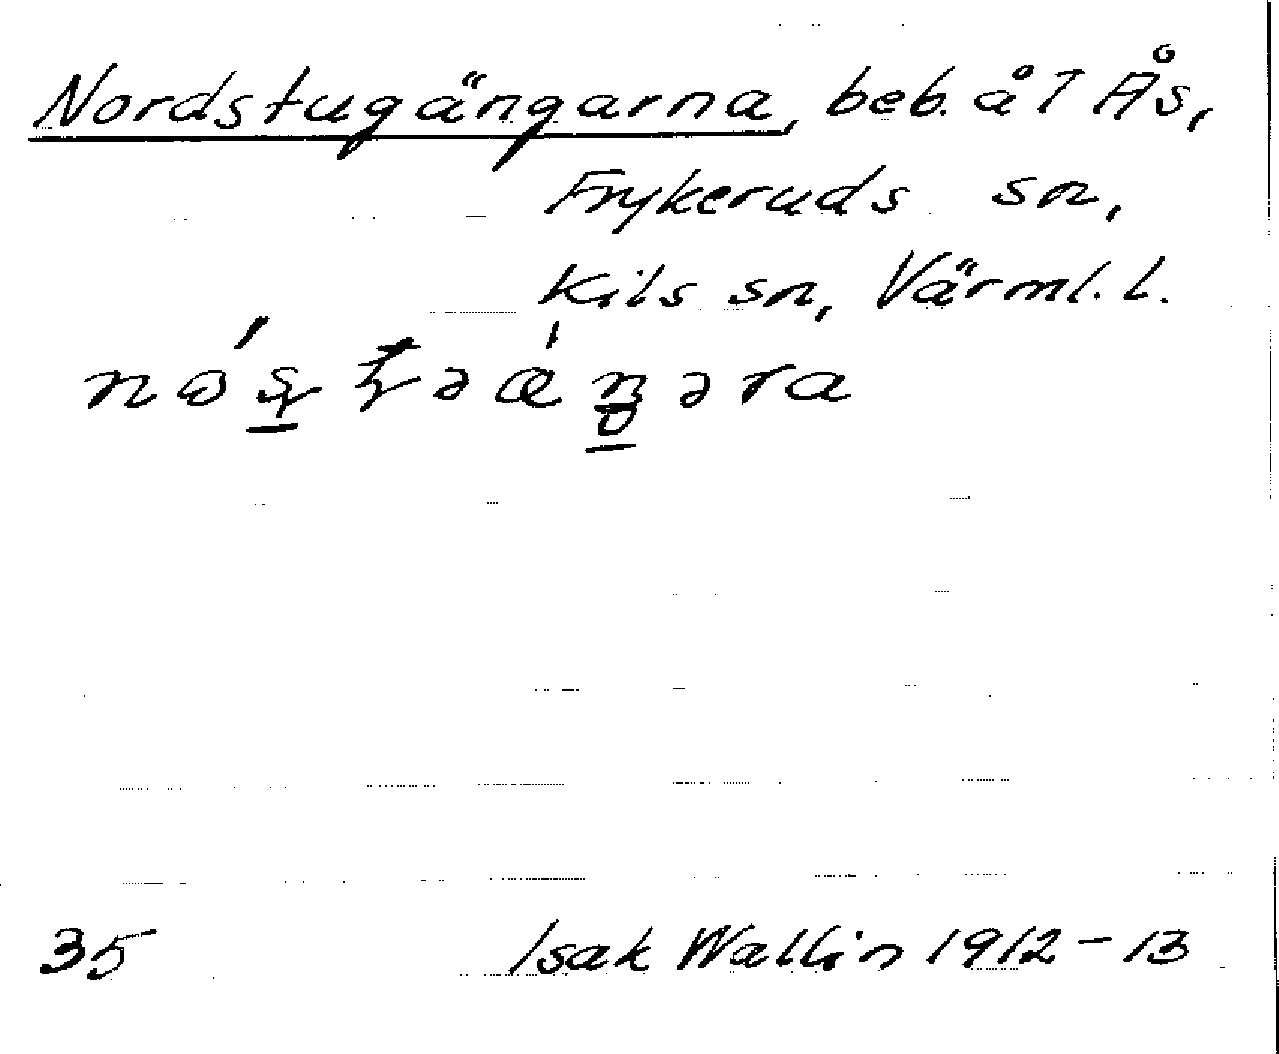 Nordstugängarna, beb. å l Ås,
Frykeruds sn,
Kils sn, Värml. l.
35 Isak Wallin 1912-13